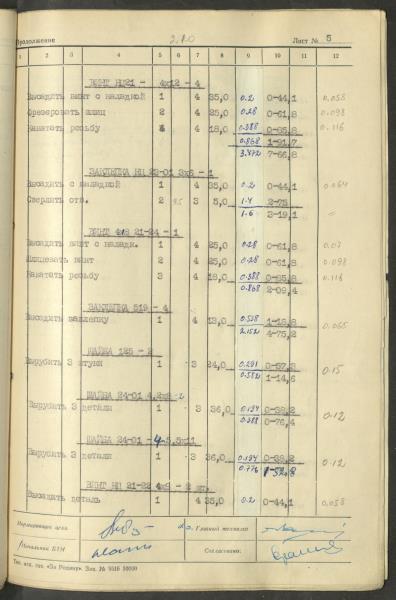 Продолжение 2.10 Лист № 5
1 2 3 4 5 6 7 8 9 10 11 12
ВИНТ НЦ21 - 4х12 - 4
Высадить винт с накладкой 1 4 35,0 0.2 0-44,1 0.058
Фрезеровать шлиц 2 4 25,0 0.28 0-61,8 0.098
Накатать резьбу 4 18,0 0.388 0-85,8 0.116
0.868 1-91,7
3.472 7-66,8
ЗАКЛЕПКА НЦ 23-01 3х6 - 1
Высадить с накладкой 1 4 35,0 0.2 0-44,1 0.064
Сверлить отв. 2 3 5,0 1.4 2-75
1.6 3-19,1
ВИНТ 4х8 21-24 - 1
Высадить винт с наклади. 1 4 25,0 0.28 0-61,8 0.07
Шлицевать винт 2 4 25,0 0.28 0-61,8 0.098
Накатать резьбу 3 4 18,0 0.388 0-85,8 0.116
0.868 2-09,4
ЗАКЛЕПКА 519 - 4
Высадить заклепку 1 4 13,0 0.538 1-18,8 0.065
2.152 4-75,2
ШАЙБА 125 - 2
Вырубить 3 штуки 1 3 24,0 0.291 0-57,3 0.15
0.582 1-14,6
ШАЙБА 24-01 4,2х8 - 2
Вырубить 3 детали 1 3 36,0 0.194 0-38,2 0.12
0.388 0-76,4
ШАЙБА 24-01 - 4-5,5х11
Вырубить 3 детали 1 3 36,0 0.194 0-38,2 0.12
0.776 1-52,8
ВИНТ НЦ 21-22 4х9 - 2 шт.
Высадить деталь 1 4 35,0 0.2 0-44,1 0.058
Нормировщик цеха Главный технолог
Начальник БТН Согласовано:
Тип. изд. газ. «За Родину». Зак. № 5516 50000